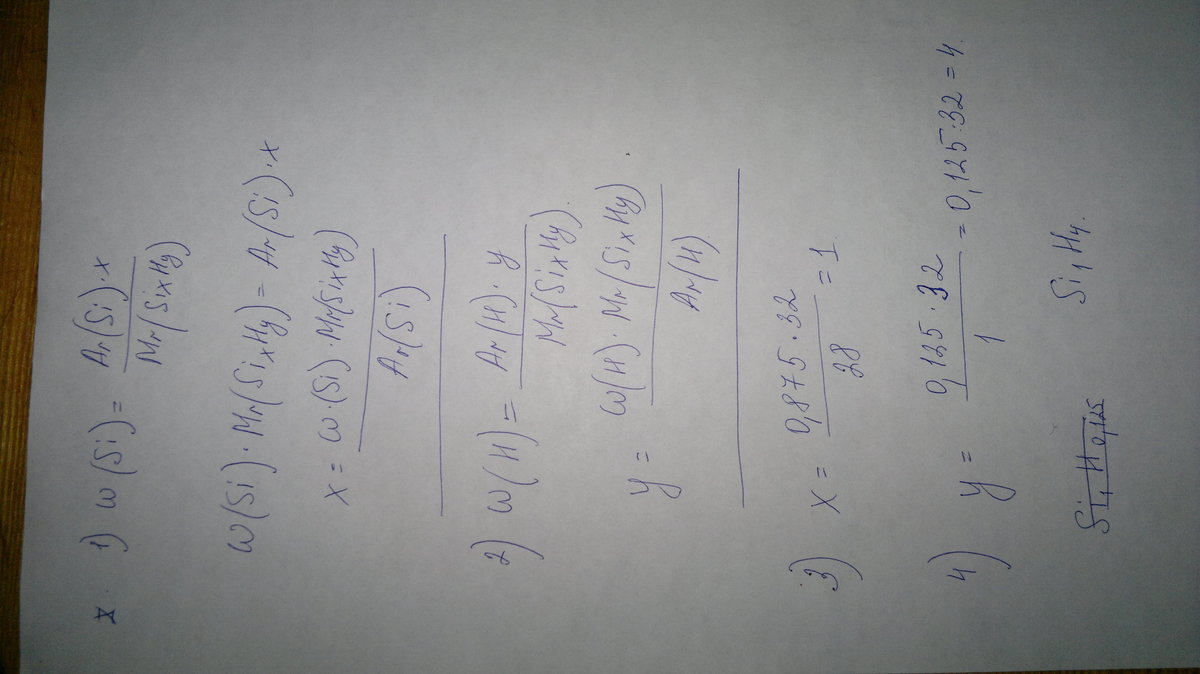 1) ω(Si) = Ar(Si)·x / Mr(SixHy)
ω(Si)·Mr(SixHy) = Ar(Si)·x
x = ω·(Si)·Mr(SixHy) / Ar(Si)
2) ω(H) = Ar(H)·y / Mr(SixHy).
y = ω(H)·Mr(SixHy) / Ar(H).
3) x = 0,875·32 / 28 = 1
4) y = 0,125·32 / 1 = 0,125:32 = 4.
Si1H0,125 Si1H4.